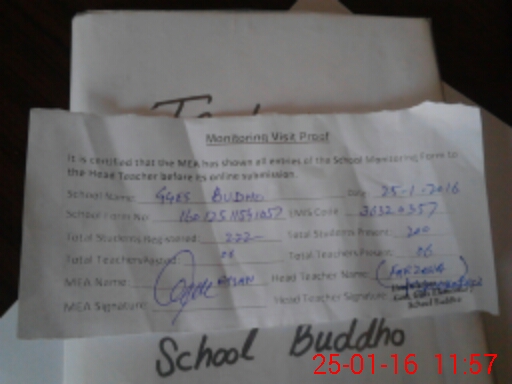 Monitoring Visit Proof
It is certified that the MEA has shown all entries of the School Monitoring Form to
the Head Teacher before its online submission.
School Name: GGES BUDHO Date: 25-1-2016
School Form No: EMIS Code
Total Students Registered: 222 Total Students Present: 200
Total Teachers Posted: 06 Total Teachers Present: 06
MEA Name: Head Teacher Name: FARZANA
MEA Signature: Head Teacher Signature:
School Buddho
School Buddho
25-01-16 11:57